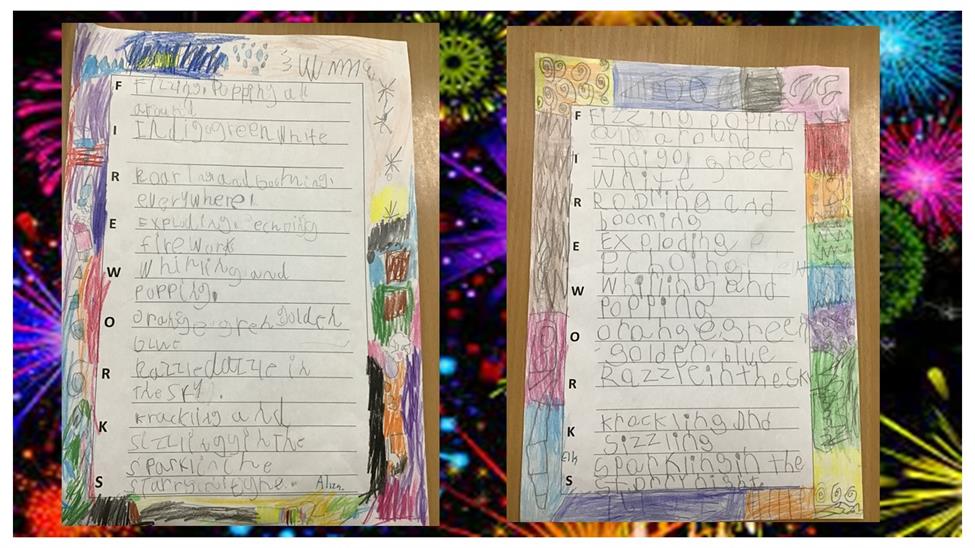 F Fizzing, Popping all
around
I Indigo green white
R Roaring and booming.
everywhere!
E Exploding. echoing
firework
W whirling and
popping.
O orange. green golden
blue
R Razzle dazzle in
the sky.
K Krackling and
S sizzlinggin the
sparklin the
starry
F Fizzing popping
all around
I Indigo, green
white
R Roaring and
booming
E Exploding
echoing
W whirling and
Popping
O orange. green
golden. blue
R Razzle in the sk
K krackling and
sizzling
S sparkling in the
starry night.